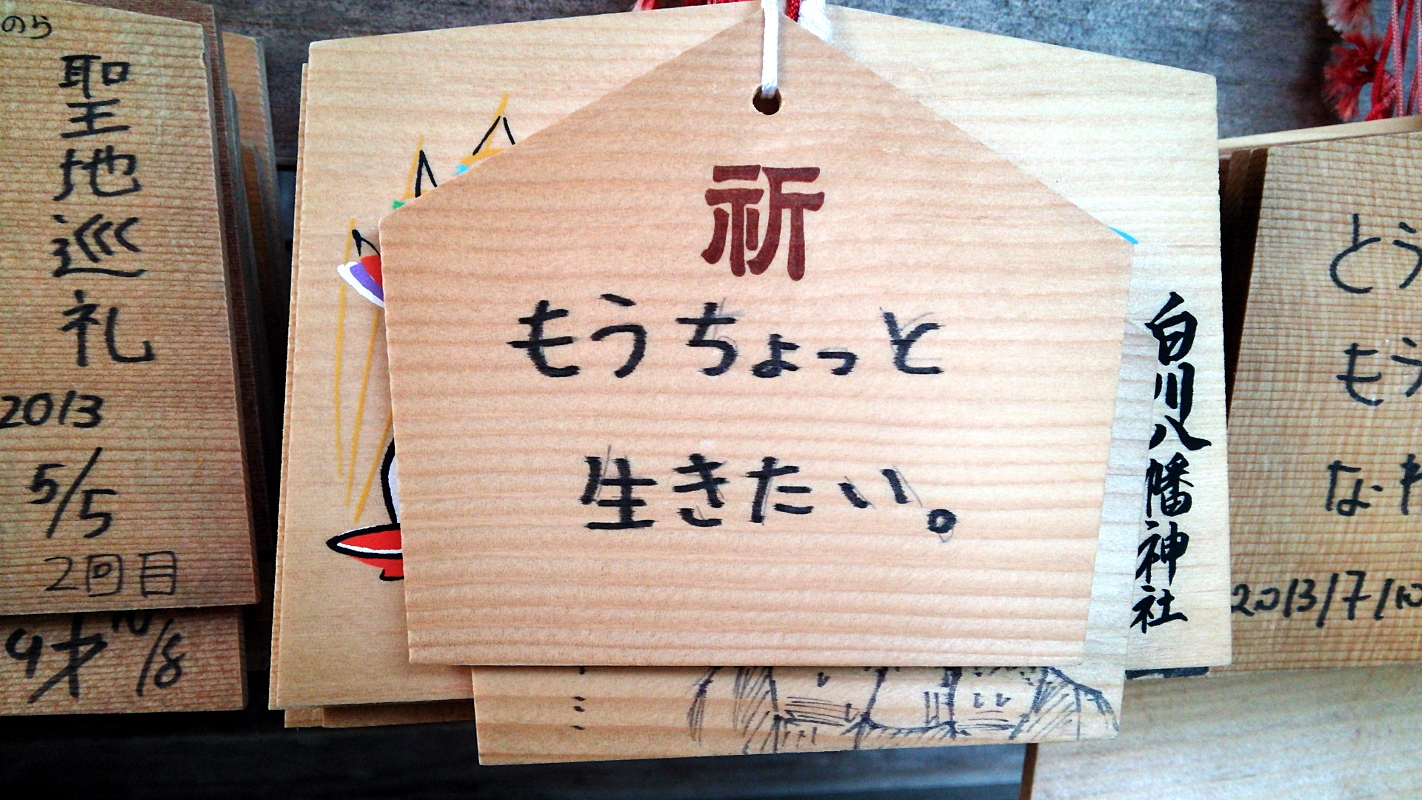 祈
もうちょっと
生きたい。
白川八幡神社
のら
聖地巡礼
2013
5/5
2回目
10/8
とう
もう
な
2013/7/10